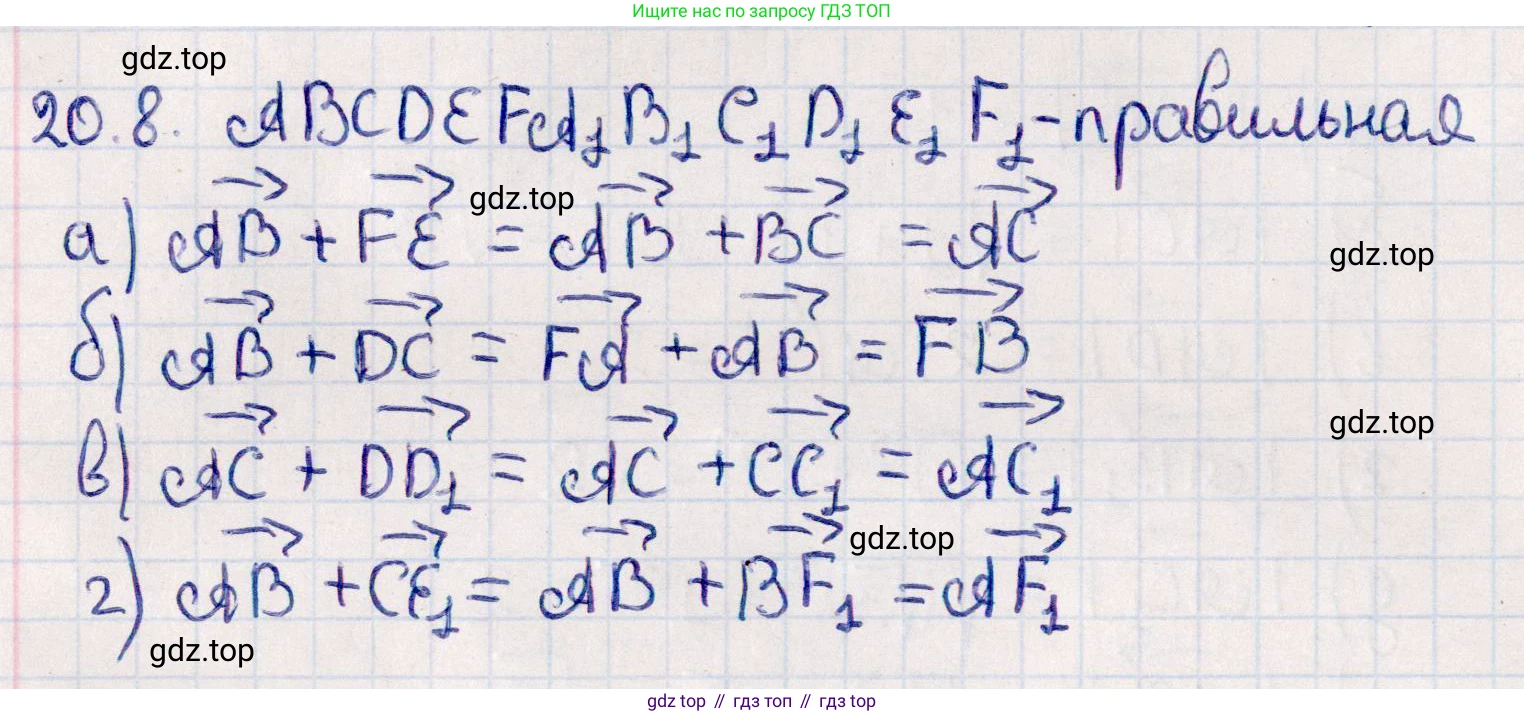 Ищите нас по запросу ГДЗ ТОП
gdz.top
20.8. ABCDEFA₁B₁C₁D₁E₁F₁ - правильная
а) AB⃗ + FE⃗ = AB⃗ + BC⃗ = AC⃗
gdz.top
gdz.top
б) AB⃗ + DC⃗ = FA⃗ + AB⃗ = FB⃗
в) AC⃗ + DD₁⃗ = AC⃗ + CC₁⃗ = AC₁⃗
gdz.top
г) AB⃗ + CE₁⃗ = AB⃗ + BF₁⃗ = AF₁⃗
gdz.top
gdz.top
gdz top // гдз топ // гдз top